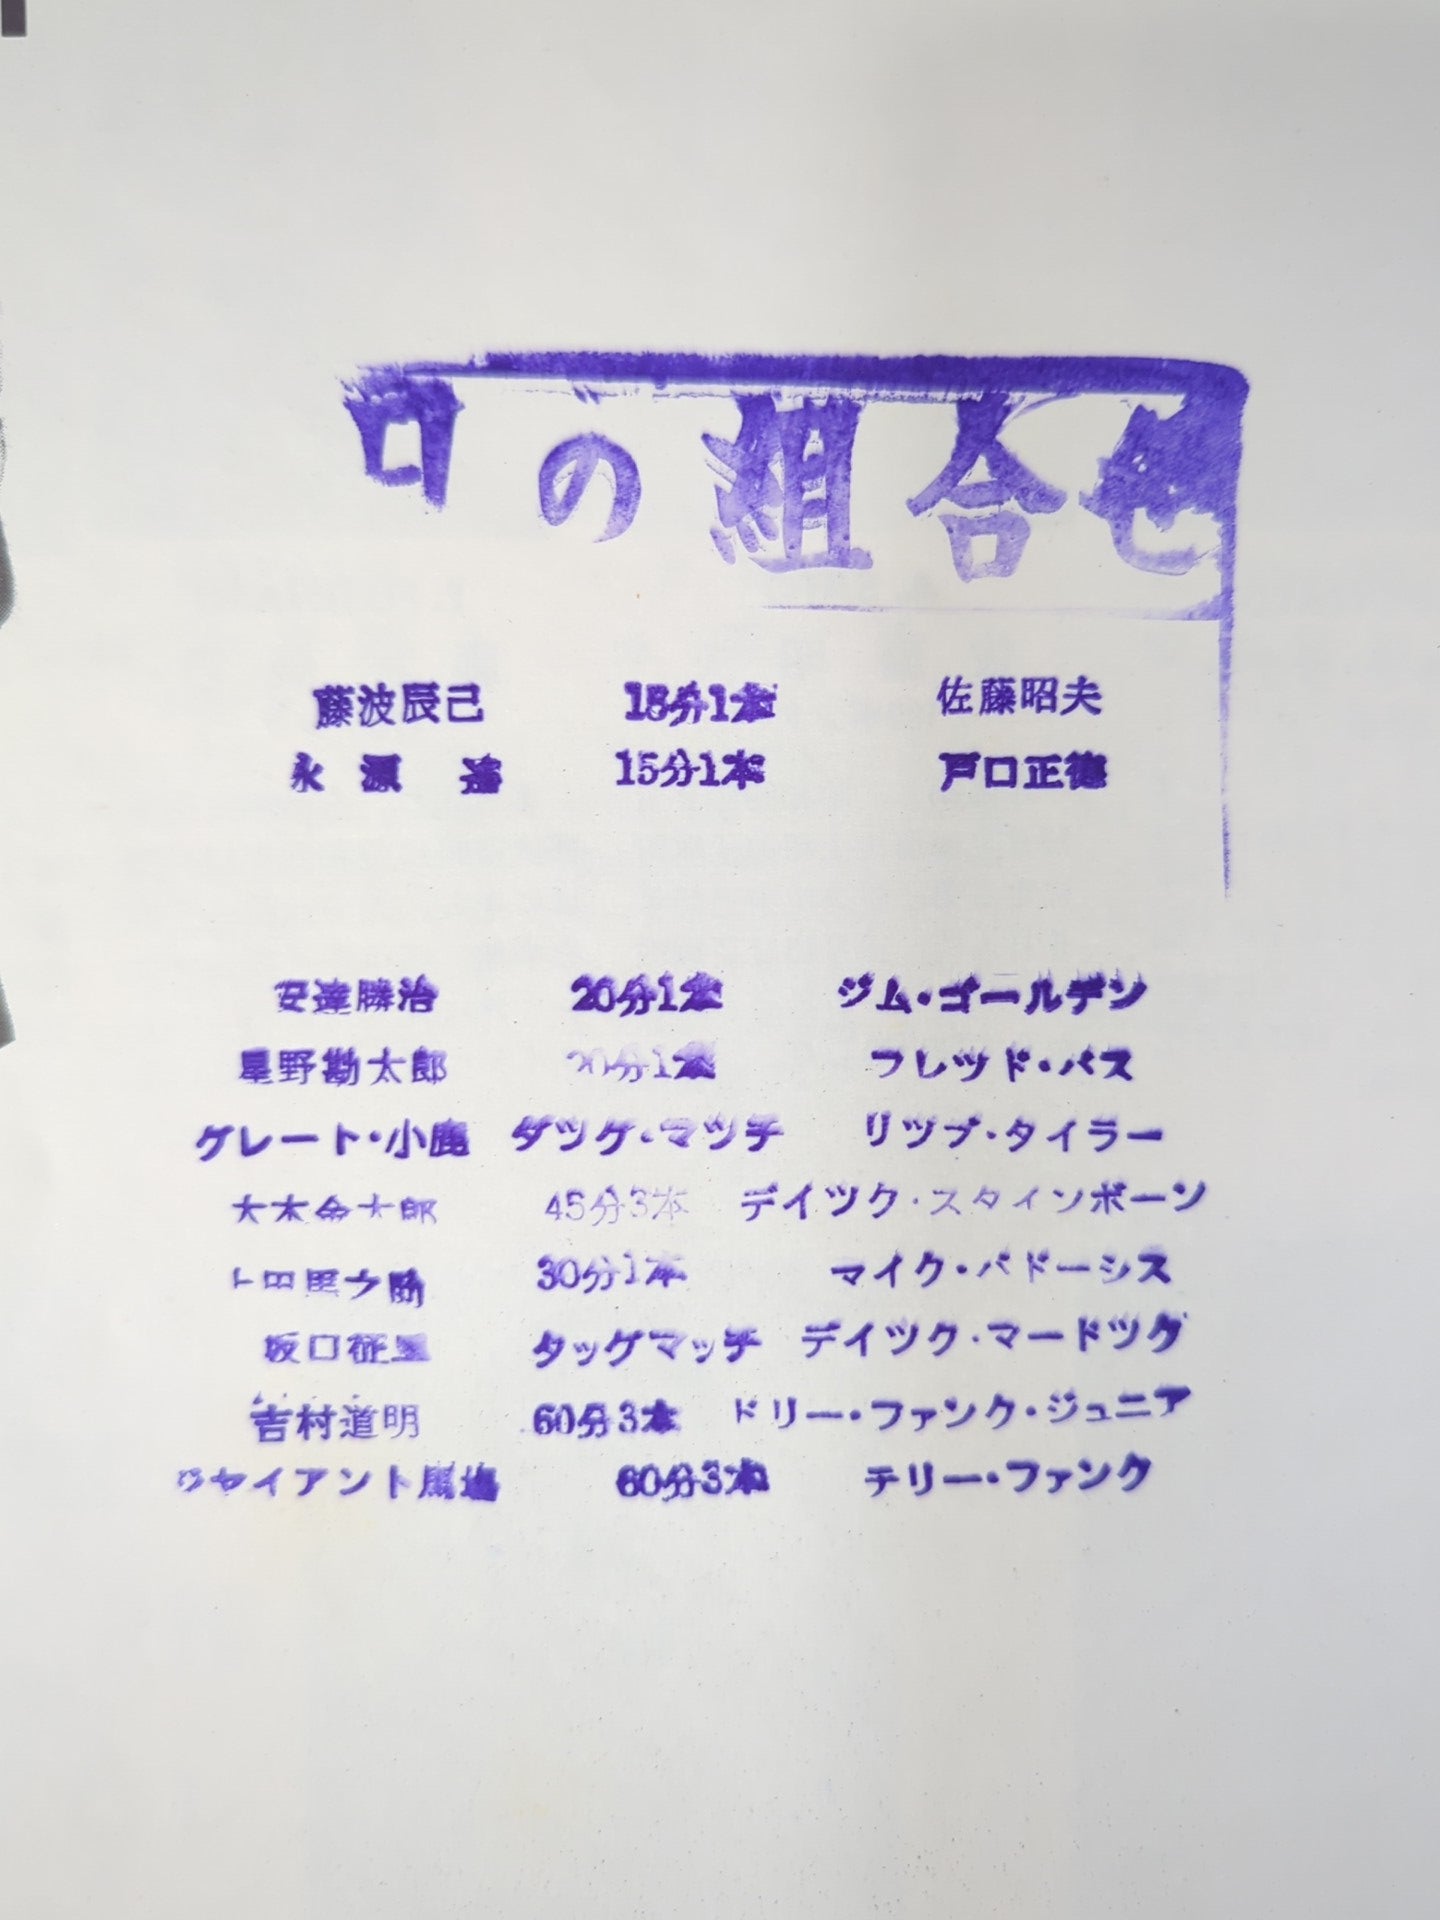 の組合せ
藤波辰己 15分1本 佐藤昭夫
永源遥 15分1本 戸口正徳
安達勝治 20分1本 ジム・ゴールデン
星野勘太郎 20分1本 フレツド・バス
グレート・小鹿 タツグ・マツチ リツプ・タイラー
大木金太郎 45分3本 デイツク・スタインボーン
上田馬之助 30分1本 マイク・パドーシス
坂口征二 タッグマッチ デイツク・マードツグ
吉村道明 60分3本 ドリー・ファンク・ジュニア
ジャイアント馬場 60分3本 テリー・ファンク